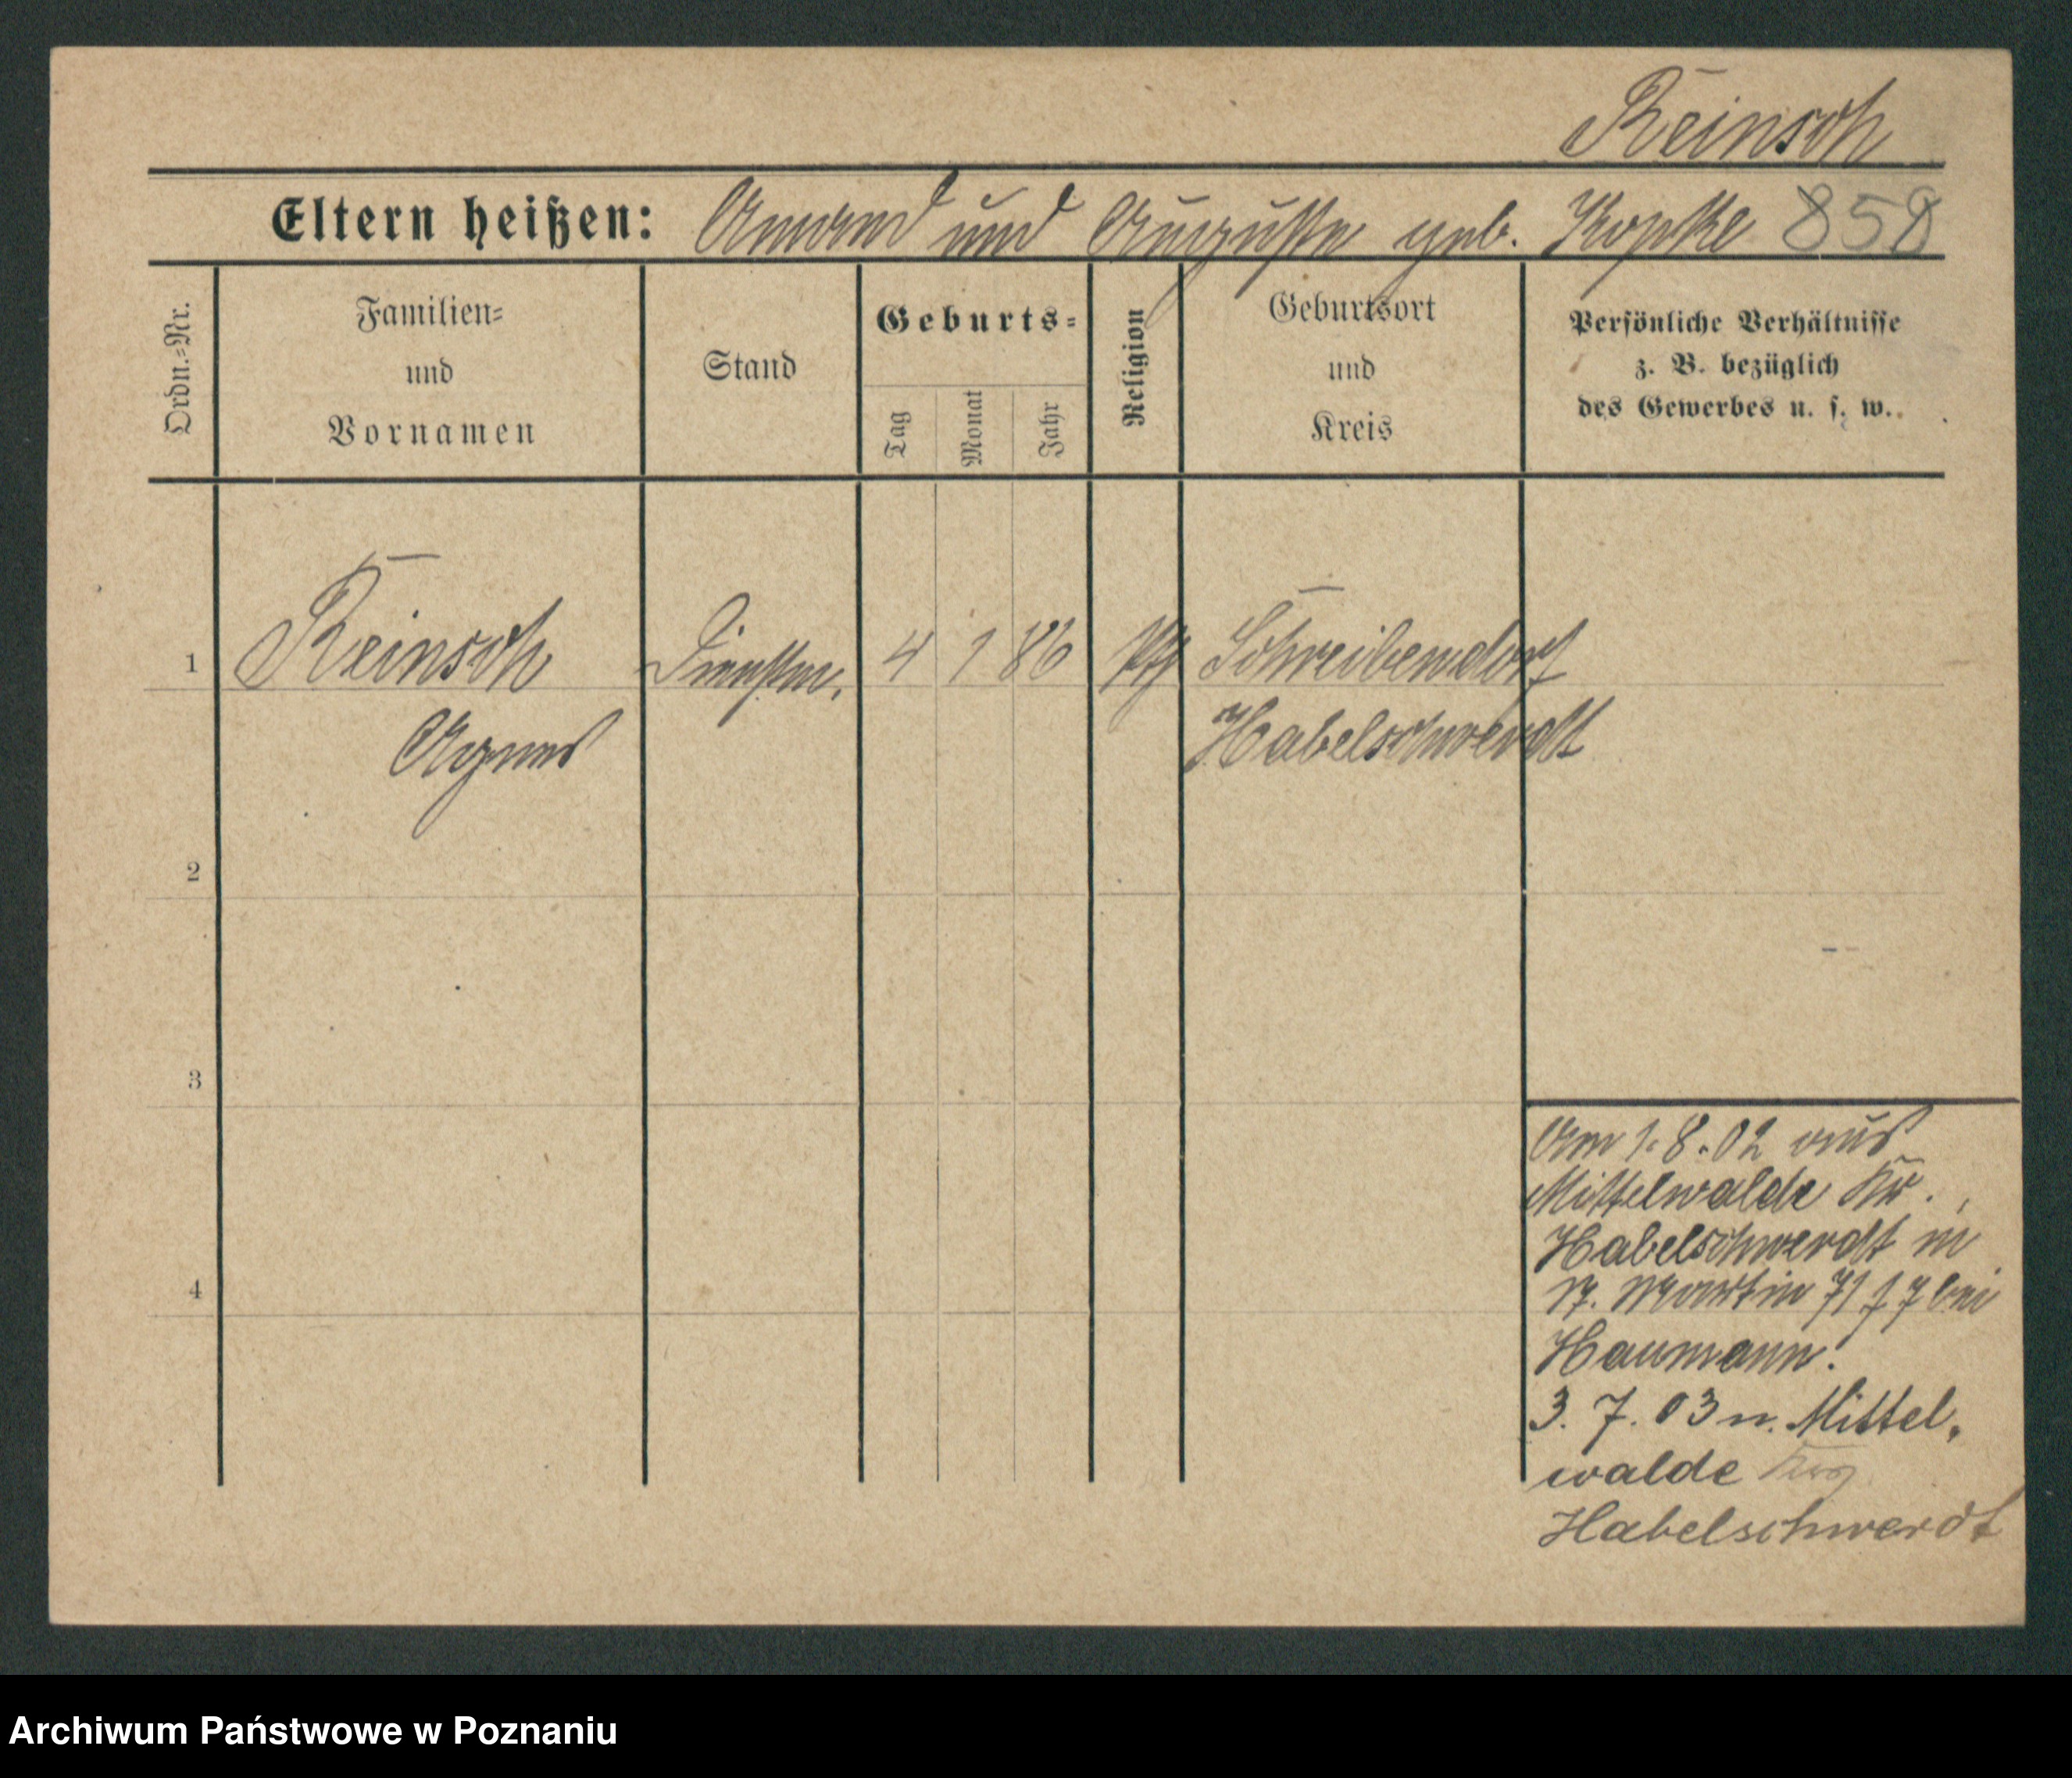 Reinsch
Eltern heißen: Amand und Auguste geb. Kopke 858
Ordn.=Nr.
Familien=
und
Vornamen
Stand
Geburts=
Tag
Monat
Jahr
Religion
Geburtsort
und
Kreis
Persönliche Verhältnisse
z. B. bezüglich
des Gewerbes u. s. w.
1 Reinsch Dienstm. 4 1 86 kth Schreibendorf
Agnes Habelschwerdt
2
3
4
Am 1.8.02 aus
Mittelwalde Kr.
Habelschwerdt in
Martin 71 bei
Haumann.
3. 7. 03 n. Mittel,
walde
Habelschwerdt
Archiwum Państwowe w Poznaniu